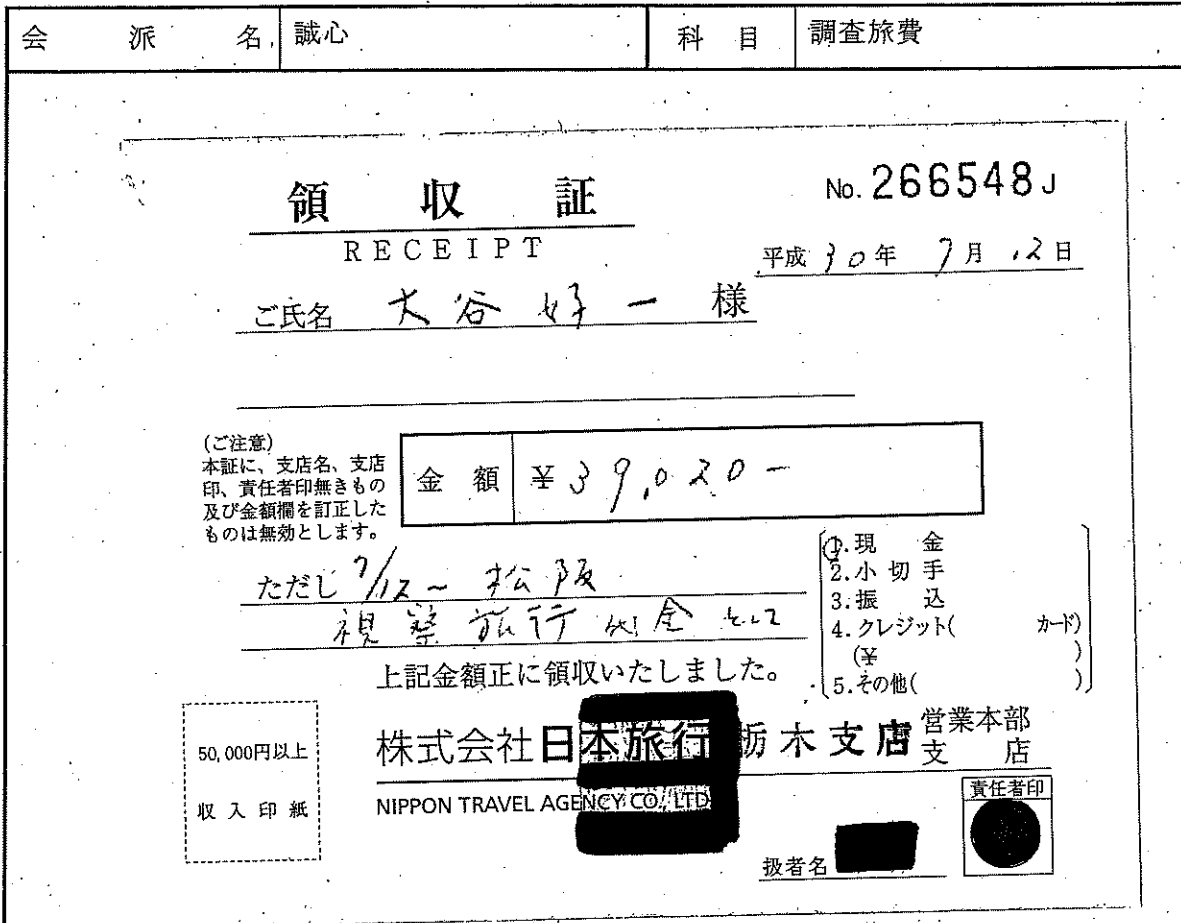 会派名 誠心 科目 調査旅費
領収証
No. 266548J
RECEIPT
平成30年7月12日
ご氏名 大谷好一様
(ご注意)
本証に、支店名、支店
印、責任者印無きもの
及び金額欄を訂正した
ものは無効とします。
金額 ¥39,020-
ただし 7/12~松阪
視察旅行代金として
1.現金
2.小切手
3.振込
4.クレジット( カード)
(¥ )
5.その他( )
上記金額正に領収いたしました。
50,000円以上
収入印紙
株式会社日本旅行栃木支店 営業本部
支店
NIPPON TRAVEL AGENCY CO., LTD
責任者印
扱者名